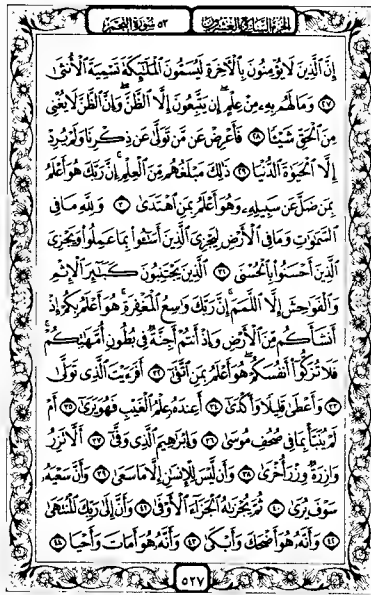 الجزء السابع والعشرون ٥٣ سورة النجم
إِنَّ الَّذِينَ لَا يُؤْمِنُونَ بِالْآخِرَةِ لَيُسَمُّونَ الْمَلَٰٓئِكَةَ تَسْمِيَةَ الْأُنثَىٰ
٢٧ وَمَا لَهُم بِهِۦ مِنْ عِلْمٍ إِن يَتَّبِعُونَ إِلَّا الظَّنَّ وَإِنَّ الظَّنَّ لَا يُغْنِي
مِنَ الْحَقِّ شَيْـًٔا ٢٨ فَأَعْرِضْ عَن مَّن تَوَلَّىٰ عَن ذِكْرِنَا وَلَمْ يُرِدْ
إِلَّا الْحَيَوٰةَ الدُّنْيَا ٢٩ ذَٰلِكَ مَبْلَغُهُم مِّنَ الْعِلْمِ إِنَّ رَبَّكَ هُوَ أَعْلَمُ
بِمَن ضَلَّ عَن سَبِيلِهِۦ وَهُوَ أَعْلَمُ بِمَنِ اهْتَدَىٰ ٣٠ وَلِلَّهِ مَا فِي
السَّمَٰوَٰتِ وَمَا فِي الْأَرْضِ لِيَجْزِيَ الَّذِينَ أَسَٰٓـُٔوا بِمَا عَمِلُوا وَيَجْزِيَ
الَّذِينَ أَحْسَنُوا بِالْحُسْنَى ٣١ الَّذِينَ يَجْتَنِبُونَ كَبَٰٓئِرَ الْإِثْمِ
وَالْفَوَٰحِشَ إِلَّا اللَّمَمَ إِنَّ رَبَّكَ وَٰسِعُ الْمَغْفِرَةِ هُوَ أَعْلَمُ بِكُمْ إِذْ
أَنشَأَكُم مِّنَ الْأَرْضِ وَإِذْ أَنتُمْ أَجِنَّةٌ فِي بُطُونِ أُمَّهَٰتِكُمْ
فَلَا تُزَكُّوٓا أَنفُسَكُمْ هُوَ أَعْلَمُ بِمَنِ اتَّقَىٰٓ ٣٢ أَفَرَءَيْتَ الَّذِي تَوَلَّىٰ
٣٣ وَأَعْطَىٰ قَلِيلًا وَأَكْدَىٰٓ ٣٤ أَعِندَهُۥ عِلْمُ الْغَيْبِ فَهُوَ يَرَىٰٓ ٣٥ أَمْ
لَمْ يُنَبَّأْ بِمَا فِي صُحُفِ مُوسَىٰ ٣٦ وَإِبْرَٰهِيمَ الَّذِي وَفَّىٰٓ ٣٧ أَلَّا تَزِرُ
وَازِرَةٌ وِزْرَ أُخْرَىٰ ٣٨ وَأَن لَّيْسَ لِلْإِنسَٰنِ إِلَّا مَا سَعَىٰ ٣٩ وَأَنَّ سَعْيَهُۥ
سَوْفَ يُرَىٰ ٤٠ ثُمَّ يُجْزَىٰهُ الْجَزَآءَ الْأَوْفَىٰ ٤١ وَأَنَّ إِلَىٰ رَبِّكَ الْمُنتَهَىٰ
٤٢ وَأَنَّهُۥ هُوَ أَضْحَكَ وَأَبْكَىٰ ٤٣ وَأَنَّهُۥ هُوَ أَمَاتَ وَأَحْيَا ٤٤
٥٢٧